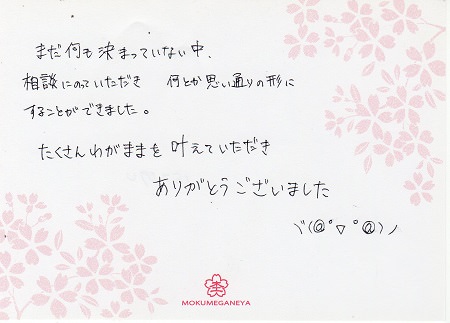 まだ何も決まっていない中、
相談にのっていただき 何とか思い通りの形に
することができました。
たくさんわがままを叶えていただき
ありがとうございました
ヾ(@°▽°@)ノ
MOKUMEGANEYA